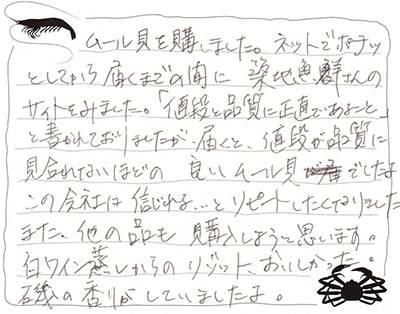 ムール貝を購しました。ネットでポチッ
としてから届くまでの間に 築地魚群さんの
サイトをみました。「値段と品質に正直であること」
と書かれておりましたが、届くと、値段が品質に
見合れてないほどの 良い ムール貝でしたよ
この会社は 信じれる…と リピートしたくてなりました
また、他の品も 購入しようと思います。
白ワイン蒸しからのリゾット、おいしかった。
磯の香りがしていましたよ。